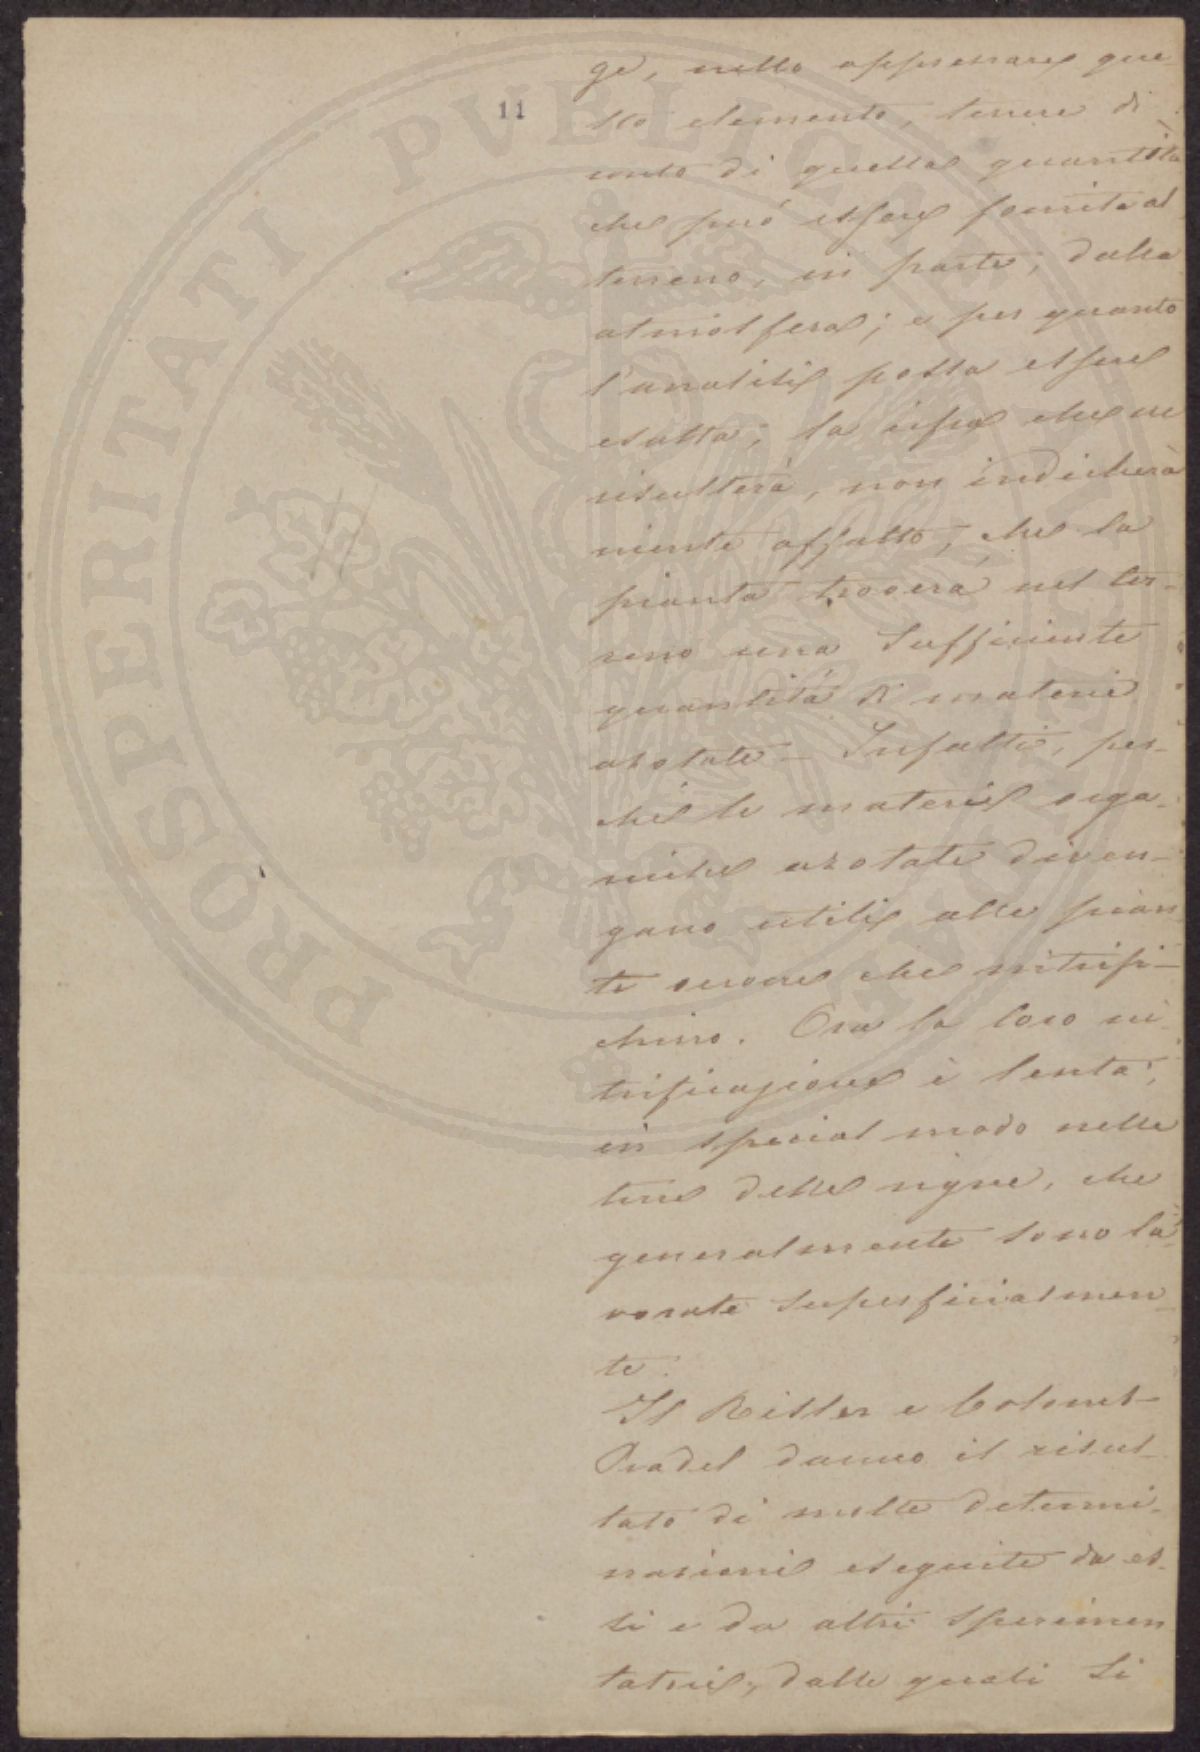 11
ge, nello apprezzare que-
sto elemento, tenere di
conto di quella quantità
che può essere fornita al
terreno, in parte, dalla
atmosfera; e per quanto
l'analisi possa essere
esatta, la cifra che ne
risulterà, non indicherà
niente affatto, che la
pianta troverà nel ter-
reno una sufficiente
quantità di materie
azotate – Infatti, per-
chè le materie orga-
niche azotate diven-
gano utili alle pian
te occorre che nitrifi-
chino. Ora la loro ni
trificazione è lenta,
in special modo nelle
terre delle vigne, che
generalmente sono la-
vorate superficialmen-
te.
Il Risler e Colomel-
Pradel danno il risul-
tato di molte determi-
nazioni eseguite da es-
si e da altri sperimen
tatori, dalle quali si
PROSPERITATI PVBLICAE AVGENDAE